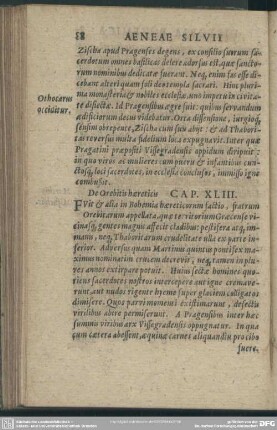 88 AENEAE SILVII
Zischa apud Pragenses degens, ex consilio suorum sa-
cerdotum omnes basilicas delere adorsus est, quæ sancto-
rum nominibus dedicatæ fuerant. Neq; enim fas esse di-
cebant alteri quam soli deo templa sacrari. Hinc pluri-
ma monasteria & nobiles ecclesiæ
te disiectæ. Id Pragensibus ægre fuit: quibus servandum
ædificiorum decus videbatur. Orta dissensione, iurgioq;
Othocarus
occiditur.
sensim obrepente, Zischa cum suis abijt: & ad Thabori-
tas reversus multa fidelium loca expugnavit. Inter quæ
Pragatini præpositi Vissegradensis oppidum diripuit:
in quo viros ac mulieres cum pueris & infantibus cun-
ctosq; loci sacerdotes, in ecclesia conclusos, immisso igne
combussit.
De Orebitis hæreticis CAP. XLIII.
FVit & alia in Bohemia hæreticorum factio, fratrum
Orebitarum appellata, quæ territorium Græcense vi-
cinasq; gentes magnis affecit cladibus: pestifera atq; im-
manu, neq; Thaboritarum crudelitate ulla ex parte in-
ferior. Adversus quam Martinus quintus pontifex ma-
ximus nominatim crucem decrevit, neq; tamen in plu-
res annos extirpare potuit. Huius sectæ homines quo-
tiens sacerdotes nostros intercepere aut igne cremave-
runt, aut nudos rigente hyeme super glaciem colligatos
dimisere. Quos parsimoniosi existimarunt, desectis
virilibus abire permiserunt. A Pragensibus inter hæc
summis viribus arx Vissegradensis oppugnatur. In qua
cum cætera abessent, equina carnes aliquandiu pro cibo
fuere,